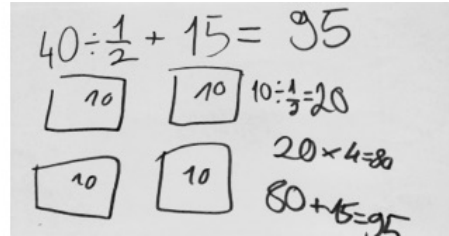 40÷1/2 + 15 = 95
10 10 10÷1/2=20
20×4=80
10 10
80+15=95